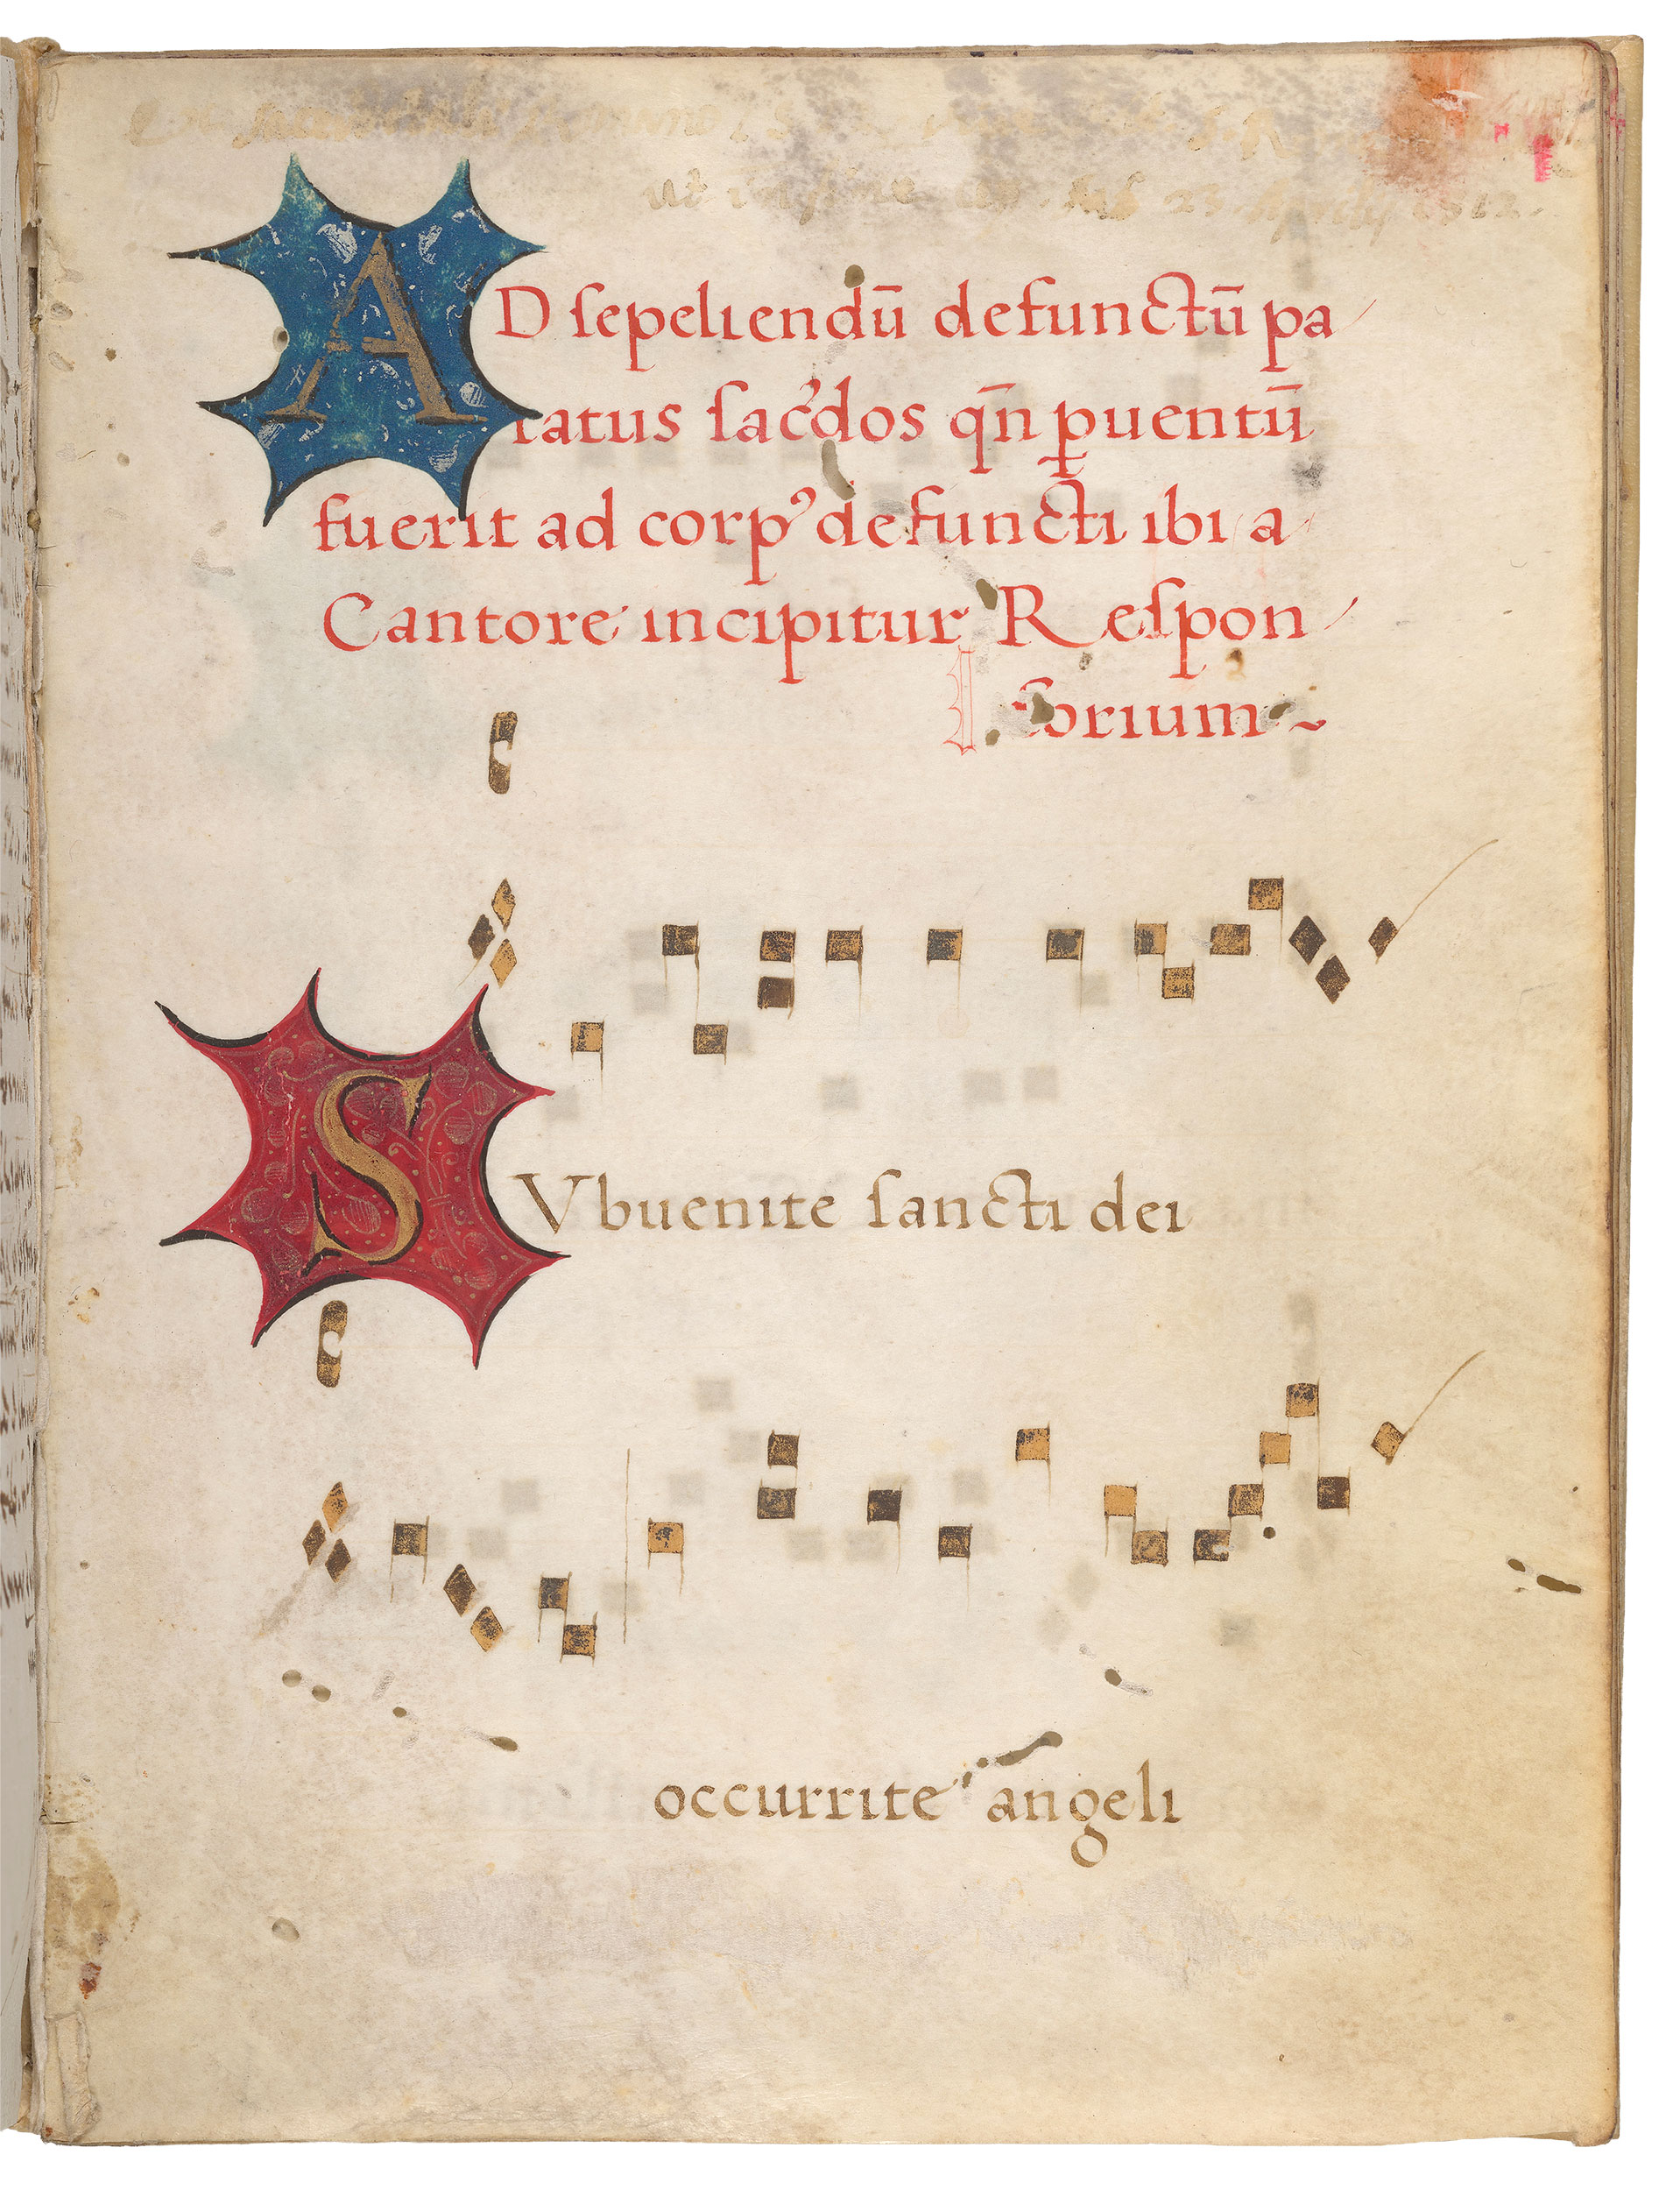 AD sepeliendū defunctū pa
ratus sac̓dos qn̄ ꝑuentū
fuerit ad corpꝰ defuncti ibi a
Cantore incipitur Respon
sorium ~
SVbuenite sancti dei
occurrite angeli